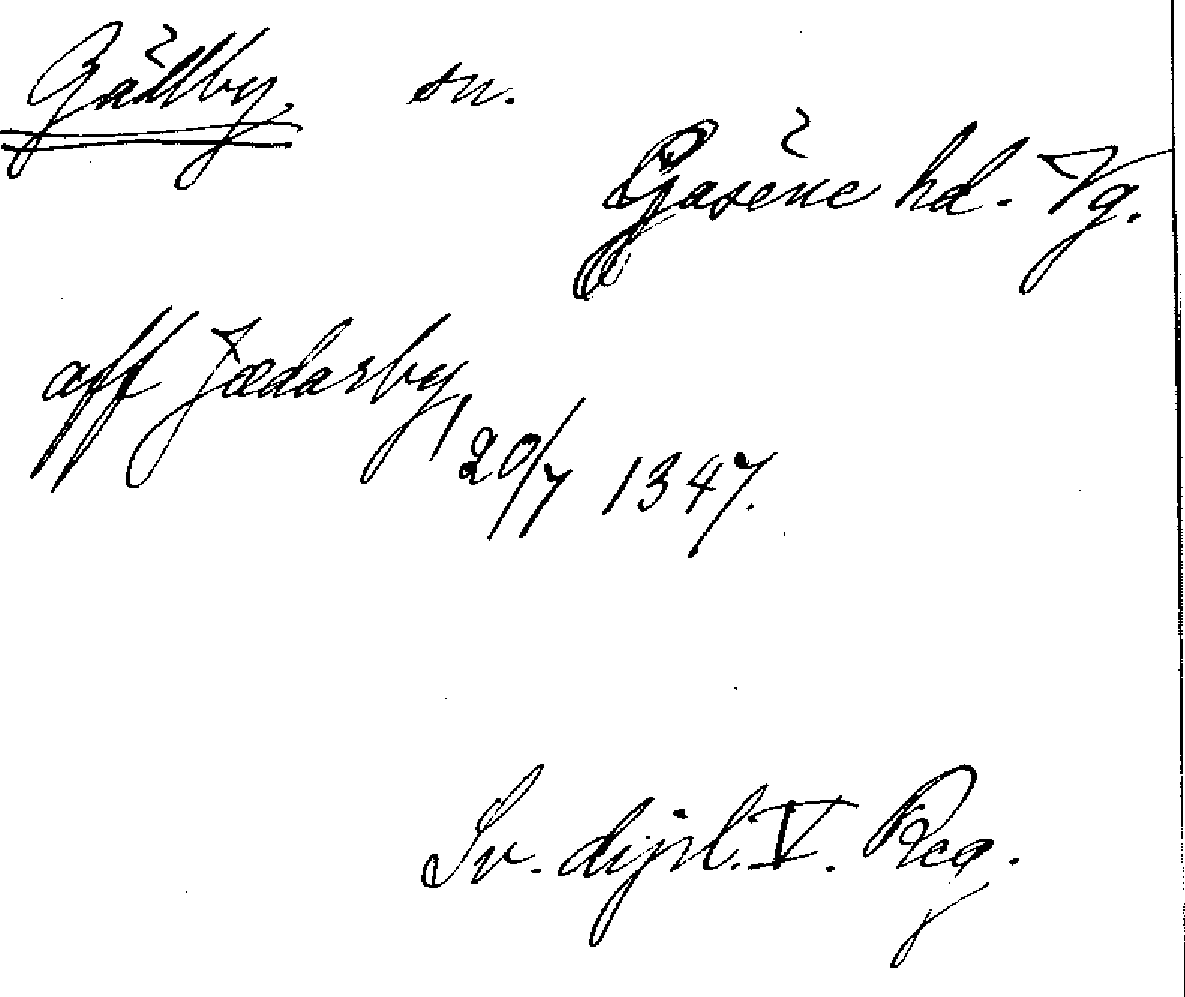 Gällby sn.
Gäsene hd. Vg.
aff Jædarby, 20/7 1347.
Sv. dipl. V. Reg.